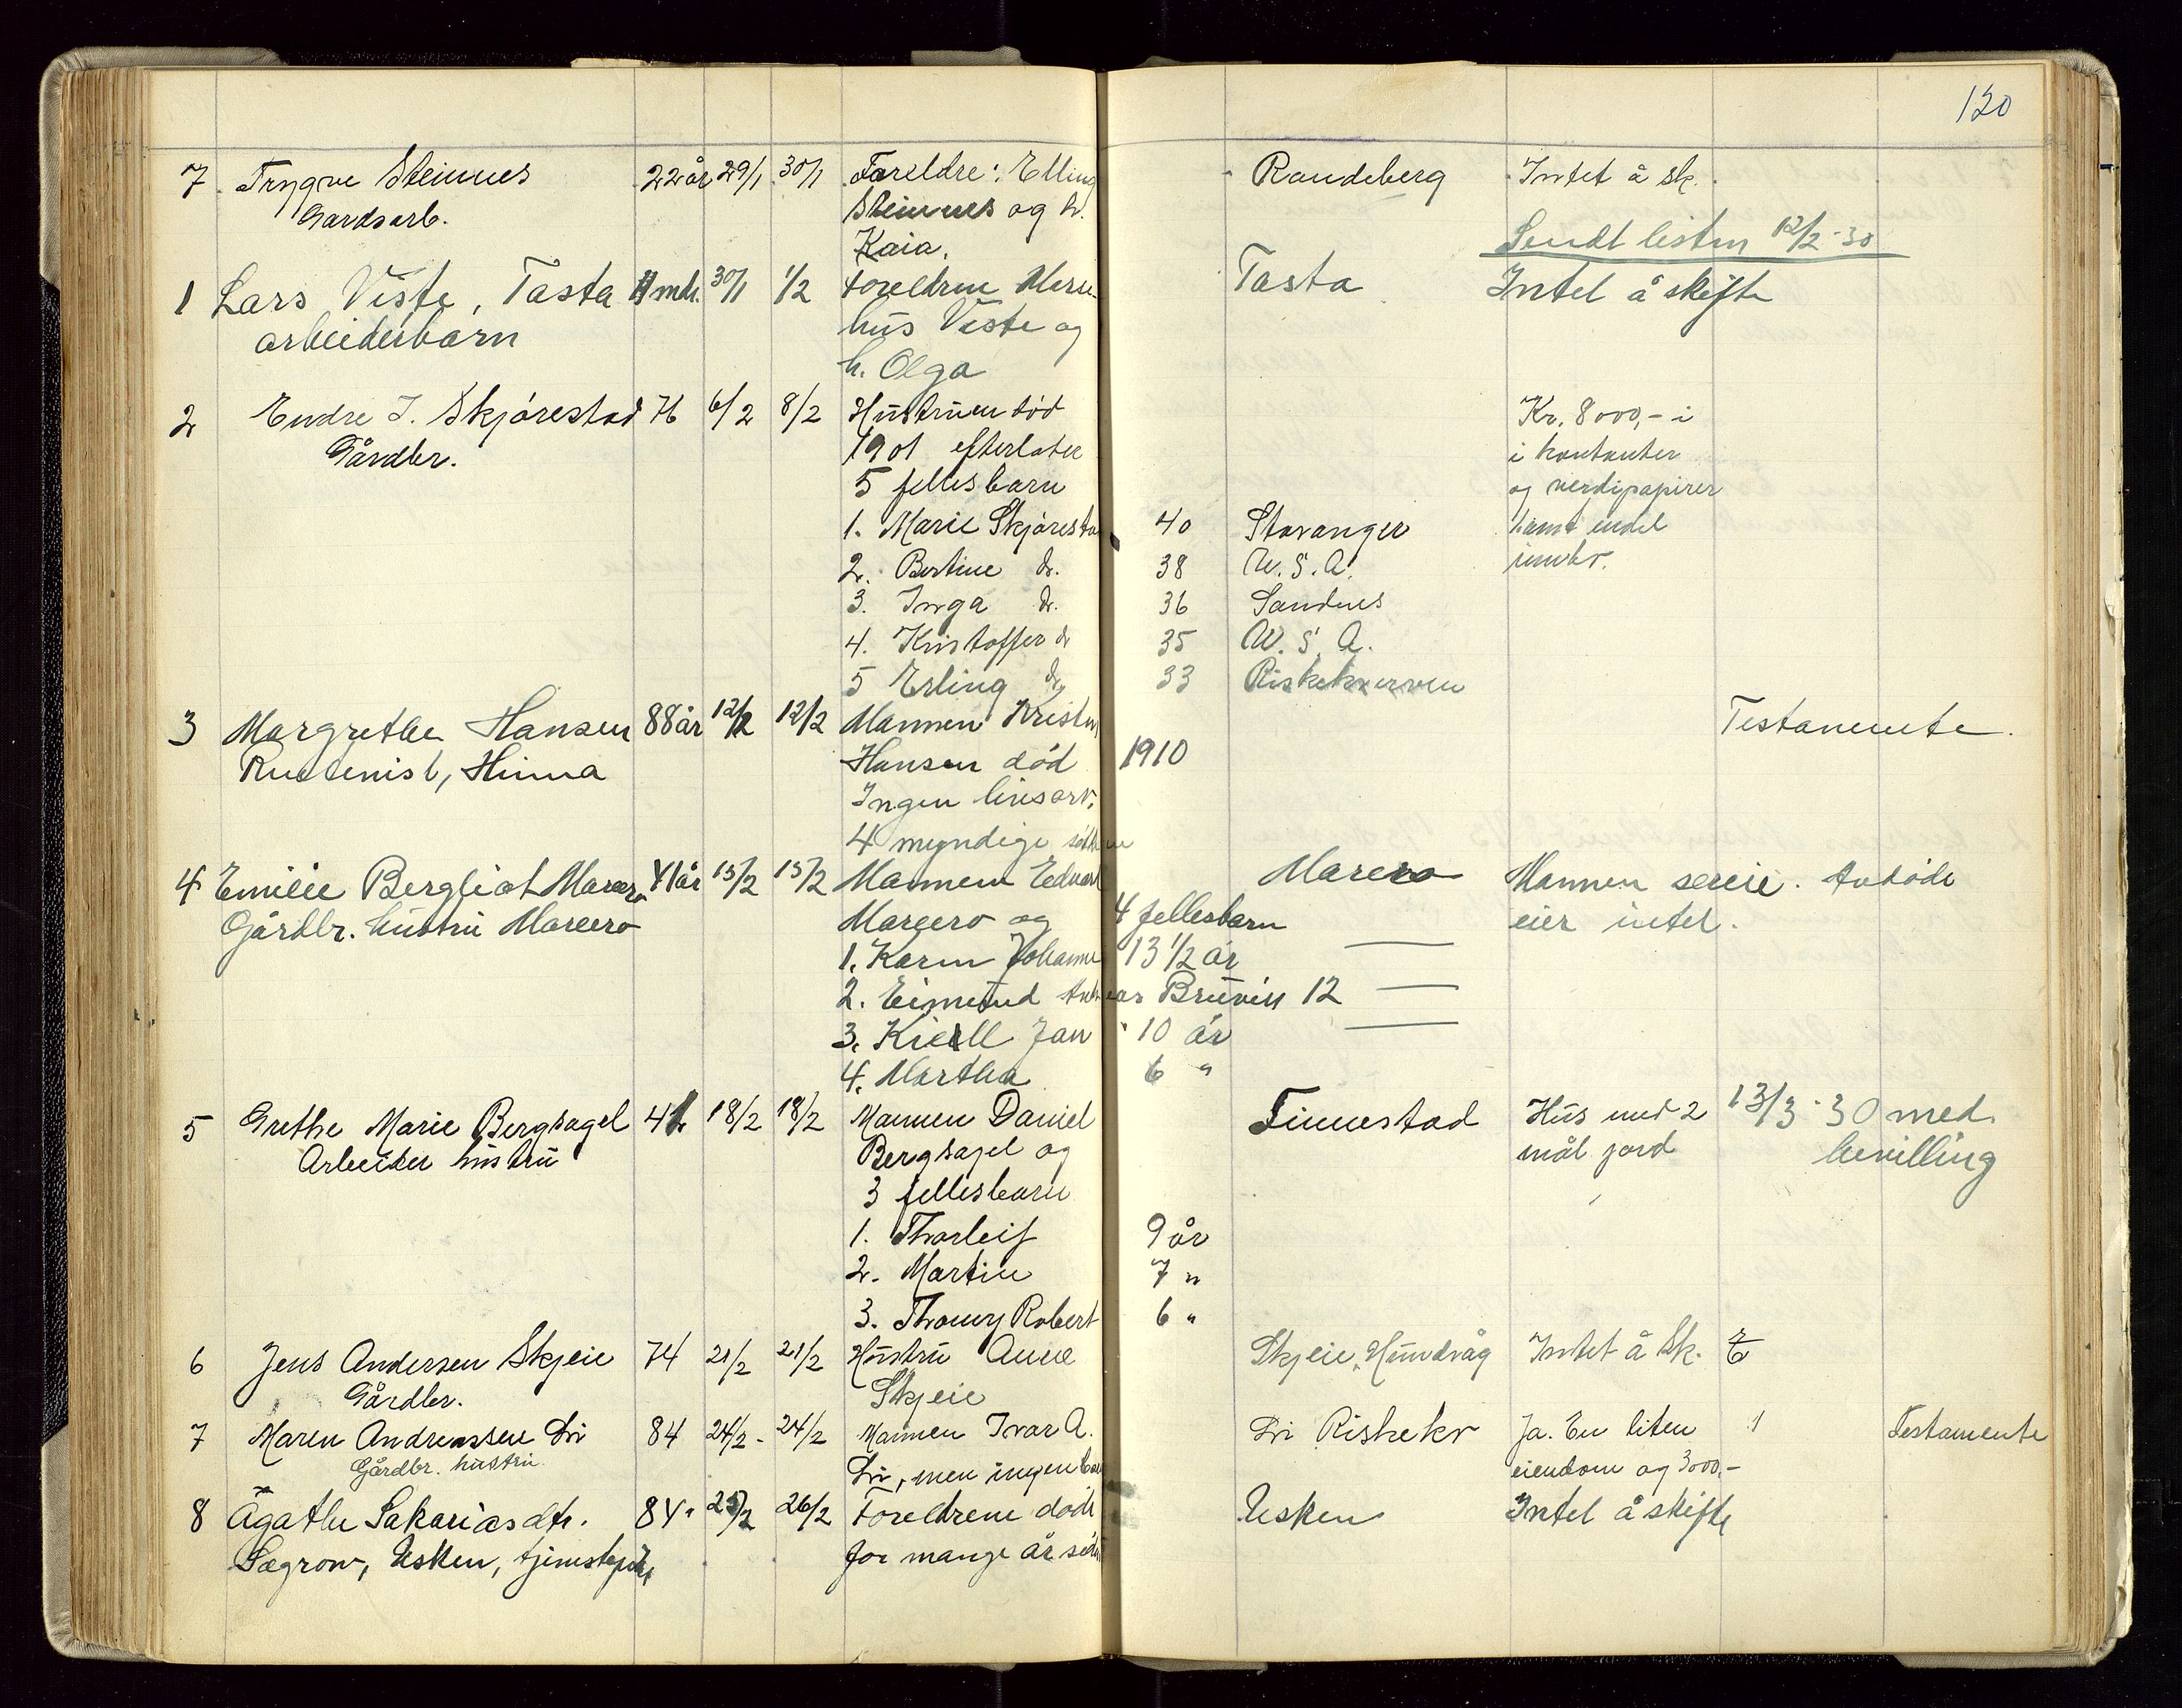 120
7 Trygve Steinnes 22 år 29/1 30/1 Foreldre: Elling Randeberg Intet å sk.
Gardsarb. Steinnes og h.
Kaia. Sendt listen 12/2-30
1 Lars Viste, Tasta mdr. 30/1 1/2 Foreldrene Tasta Intet å skifte
arbeiderbarn hus Viste og
h. Olga
2 Endre J. Skjørestad 76 6/2 8/2 Hustruen død Kr. 8000,- i
Gårdbr. 1901 efterlater i kontanter
5 fellesbarn og verdipapirer
1. Marie Skjøresta 40 Stavanger samt endel
2. Bertine do. 38 U.S.A. innbo.
3. Inga do. 36 Sandnes
4. Kristoffer do 35 U.S.A.
5 Erling do 33 Riskekverven
3 Margrethe Hansen 88 år 12/2 12/2 Mannen Kristen Testamente.
Hinna Hansen død 1910
Ingen livsarv.
4 myndige
4 Emilie Bergliot Marero 41 år 15/2 15/2 Mannen Edvard Marero Mannen sereie. Avdøde
Gårdbr. hustru Marero Marero og 4 fellesbarn eier intet.
1. Karen Johanne 13 1/2 år —
2. Eimund Andreas 12 —
3. Kiell Jan 10 år —
4. Martha 6 "
5 Grethe Marie Bergsagel 18/2 18/2 Mannen Daniel Finnestad Hus med 2 13/3-30 med
Arbeider hustru Bergsagel og mål jord bevilling
3 fellesbarn
1. Thorleif 9 år
2. Martin 7 "
3. Thomy Robert 6 "
6 Jens Andersen Skjeie 74 21/2 21/2 Hustru Anna Skjeie, Hundvåg Intet å sk.
Gårdbr. Skjeie
7 Maren Andreassen Li 84 24/2 - 24/2 Mannen Ivar A. Li Riskekv Ja. En liten 1 Testamente
Gårdbr. hustru. Li, men ingen barn eiendom og 3000,-
8 Agathe Sakariasdtr. 84 25/2 26/2 Foreldrene døde Usken Intet å skifte
Sægrov, Usken, for mange år siden